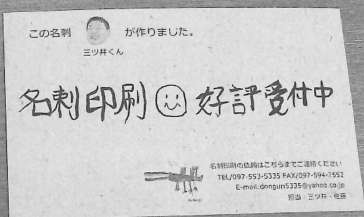 この名刺 が作りました。
三ツ井くん
名刺印刷 好評受付中
名刺印刷の依頼はこちらまでご連絡ください
TEL/097-553-5335 FAX/097-594-2552
E-mail:donguri5335@yahoo.co.jp
担当:三ツ井・佐藤